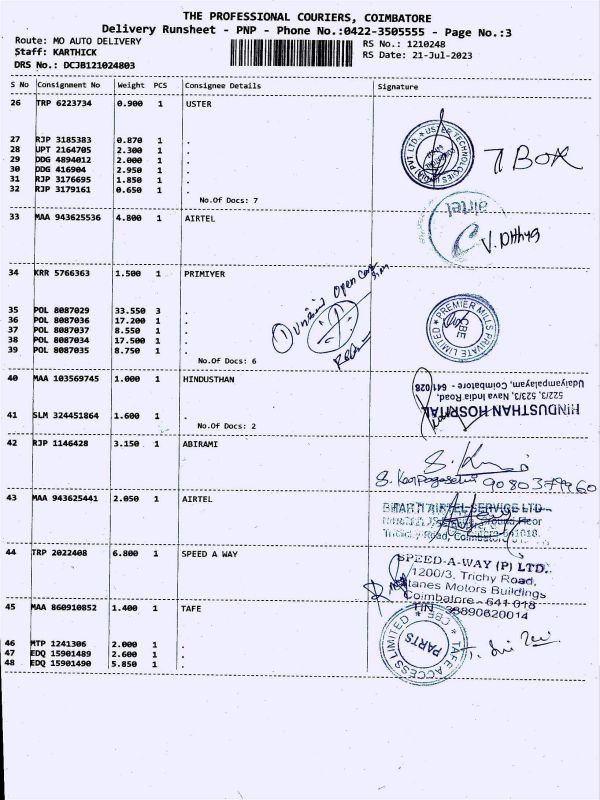 THE PROFESSIONAL COURIERS, COIMBATORE
Delivery Runsheet - PNP - Phone No.:0422-3505555 - Page No.:3
Route: MO AUTO DELIVERY RS No.: 1210248
Staff: KARTHICK RS Date: 21-Jul-2023
DRS No.: DCJB121024803
S No Consignment No Weight PCS Consignee Details Signature
26 TRP 6223734 0.900 1 USTER
USTER TECHNOLOGIES (I) PVT LTD.
7 BOX
27 RJP 3185383 0.870 1 .
28 UPT 2164705 2.300 1 .
29 DDG 4894012 2.000 1 .
30 DDG 416904 2.950 1 .
31 RJP 3176695 1.850 1 .
32 RJP 3179161 0.650 1 .
No.Of Docs: 7
33 MAA 943625536 4.800 1 AIRTEL
airtel
34 KRR 5766363 1.500 1 PRIMIYER
PREMIER MILLS PRIVATE LIMITED
CBE
35 POL 8087029 33.550 3 .
36 POL 8087036 17.200 1 .
37 POL 8087037 8.550 1 .
38 POL 8087034 17.500 1 .
39 POL 8087035 8.750 1 .
No.Of Docs: 6
40 MAA 103569745 1.000 1 HINDUSTHAN
HINDUSTHAN HOSPITAL
522/3, 523/3, Nava India Road,
Udaiyampalayam, Coimbatore - 641 028
41 SLM 324451864 1.600 1 .
No.Of Docs: 2
42 RJP 1146428 3.150 1 ABIRAMI
43 MAA 943625441 2.050 1 AIRTEL
BHARTI AIRTEL SERVICE LTD
Ground Floor
Trichy Road, Coimbatore-641018.
44 TRP 2022408 6.800 1 SPEED A WAY
SPEED-A-WAY (P) LTD.
1200/3, Trichy Road,
Stanes Motors Buildings
Coimbatore - 641 018
TIN 33890620014
45 MAA 860910852 1.400 1 TAFE
TAFE ACCESS LIMITED * CBE *
PARTS
46 MTP 1241306 2.000 1 .
47 EDQ 15901489 2.600 1 .
48 EDQ 15901490 5.850 1 .